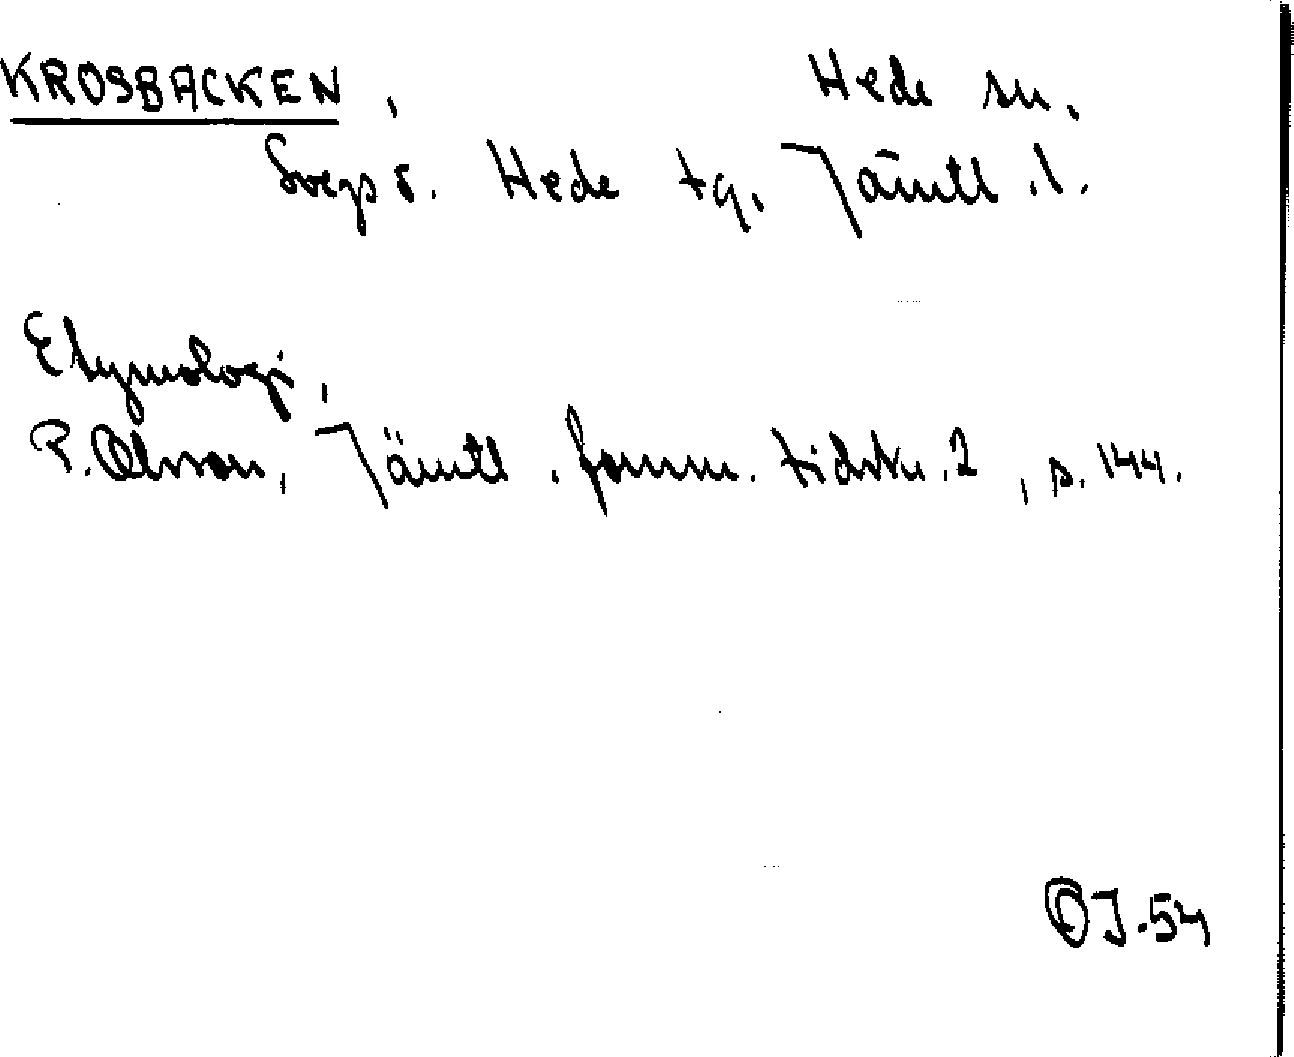 KROSBACKEN, Hede sn.
Svegs s. Hede tg. Jämtl. l.
Etymologi,
P. Olsson, Jämtl. fornm. tidskr. 2, s. 144.
OJ.54